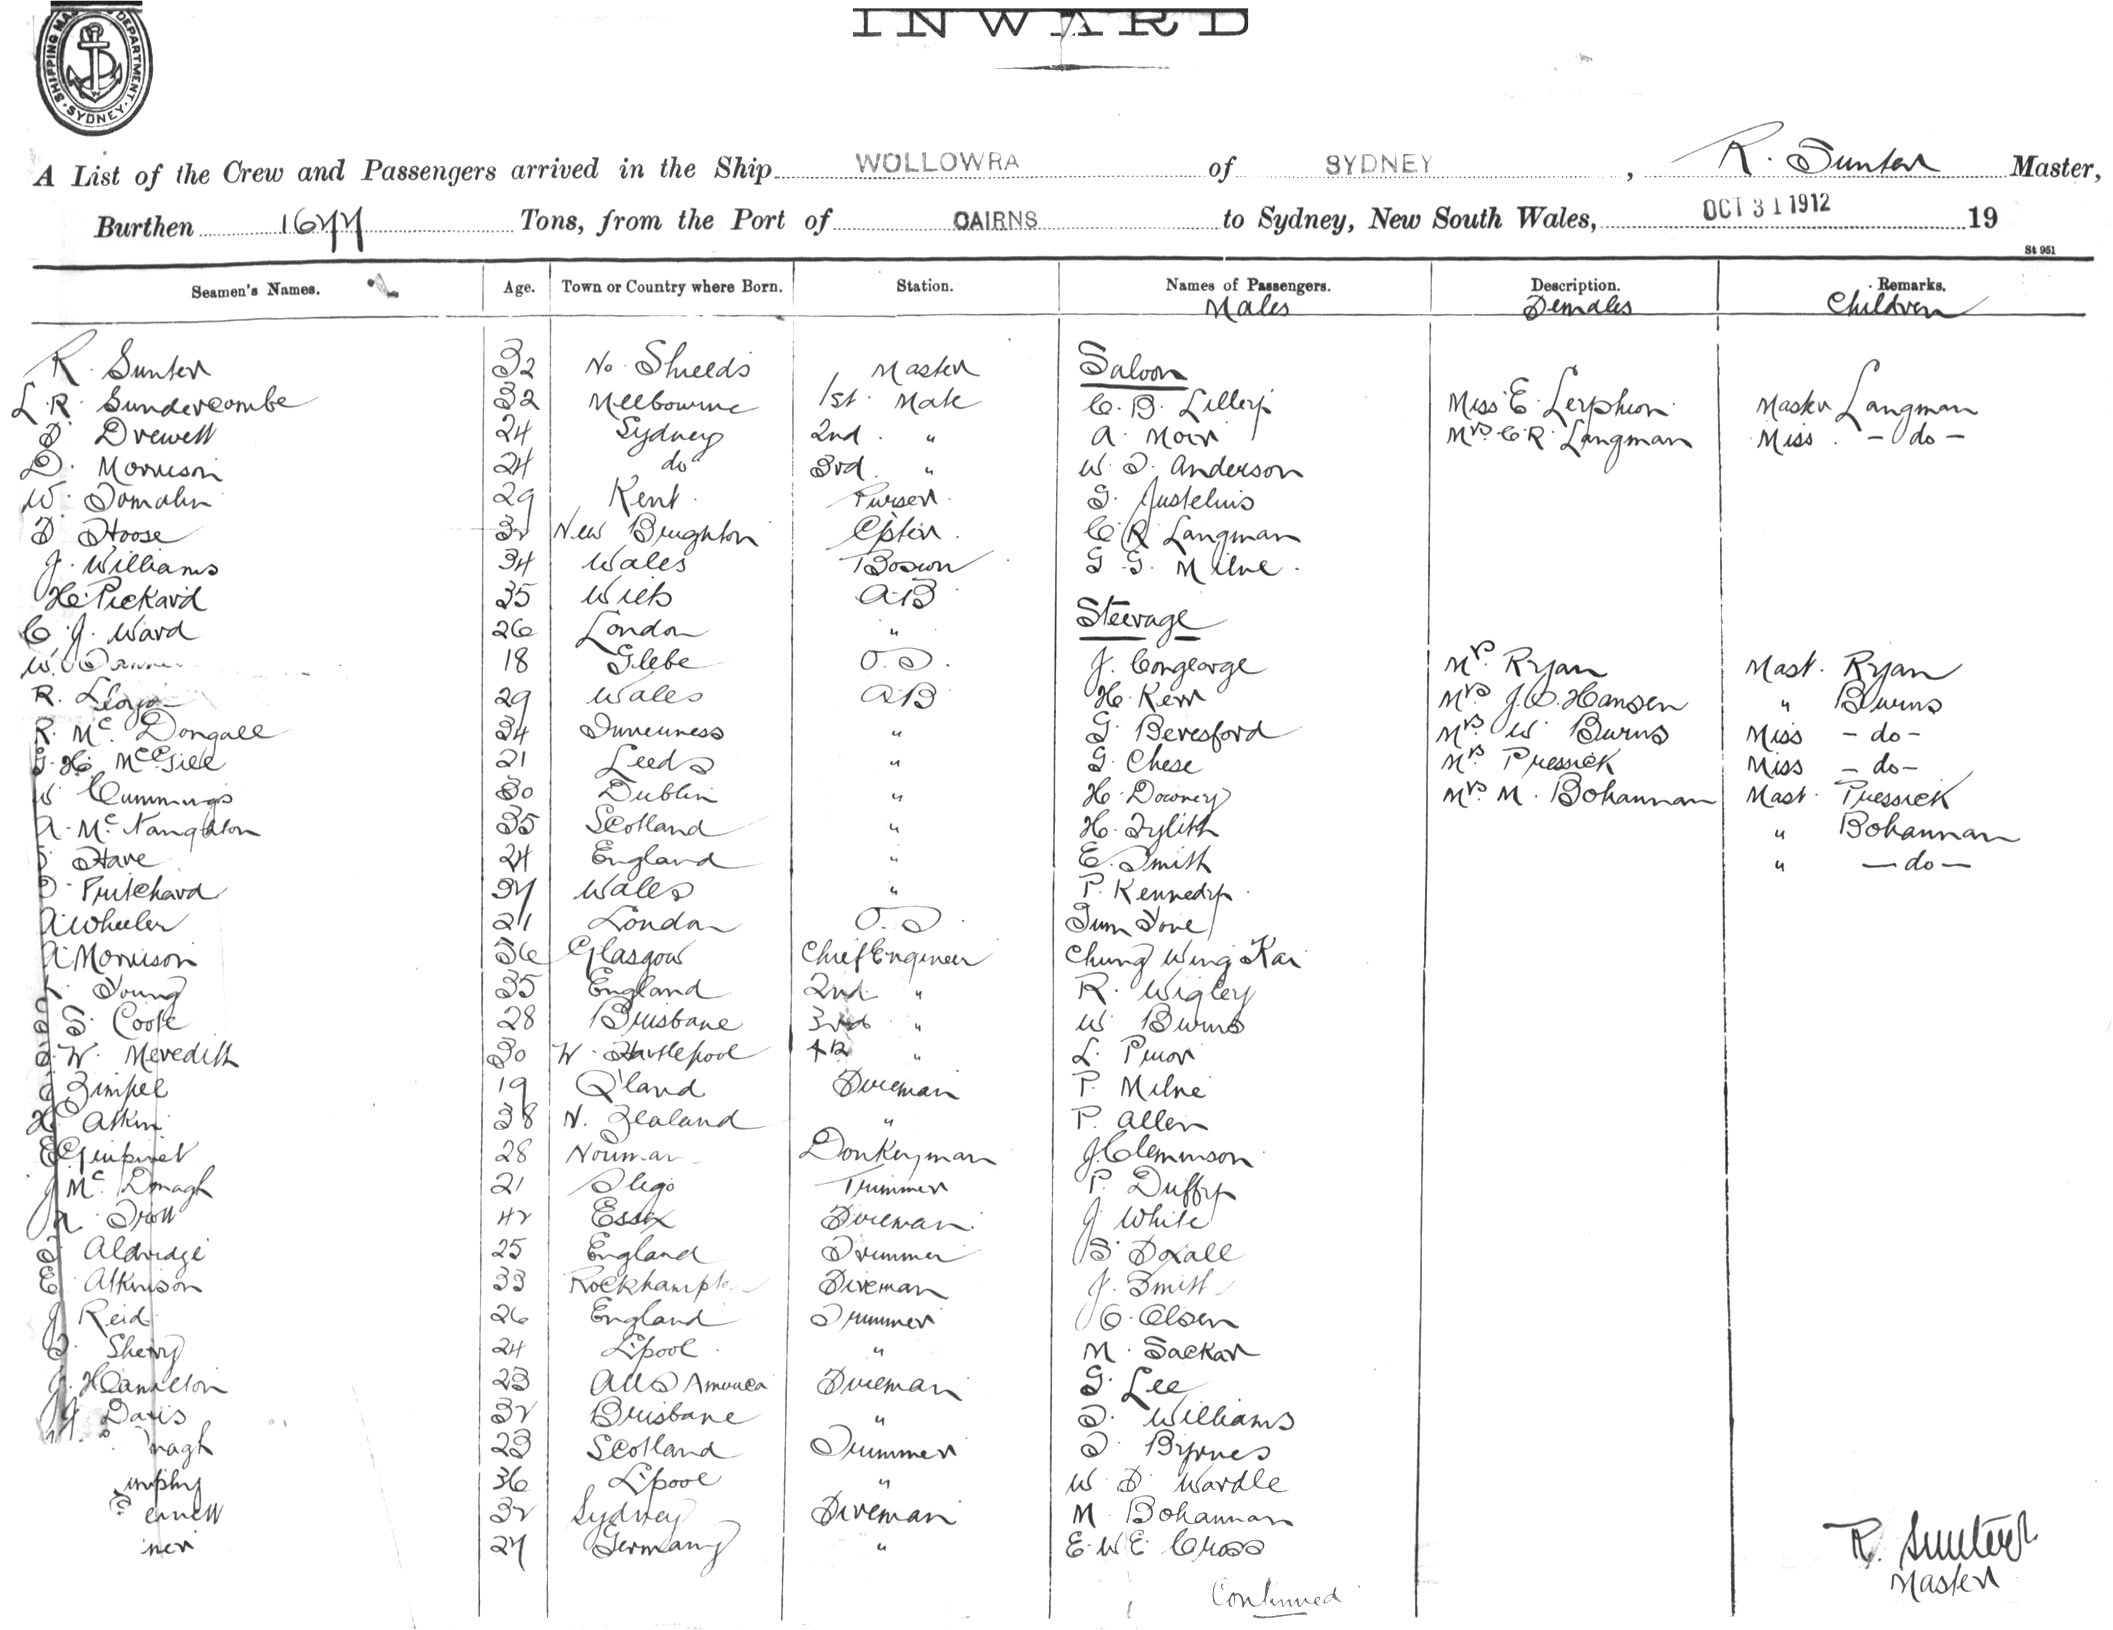 SHIPPING MASTER'S DEPARTMENT. SYDNEY
INWARD
A List of the Crew and Passengers arrived in the Ship WOLLOWRA of SYDNEY, R. Sunter Master,
Burthen 1677 Tons, from the Port of CAIRNS to Sydney, New South Wales, OCT 31 1912 19
St 951
Seamen's Names. Age. Town or Country where Born. Station. Names of Passengers. Description. Remarks.
Males Females Children
R. Sunter 32 No. Shields Master Saloon
L. R. Sundercombe 32 Melbourne 1st. Mate C. B. Lillery Miss E. Master Langman
F Drewett 24 Sydney 2nd. " A. Moir Mrs C R. Langman Miss. - do -
D. Morrison 24 do 3rd. " W. T. Anderson
W. Tomalin 29 Kent. Purser. G. Justelius
F Hoose 32 New Brighton C R Langman
J. Williams 34 Wales Bosun G. G. Milne.
H. Pickard 35 Wick AB Steerage
C. J. Ward 26 London "
W. 18 Glebe O.S. J. Congearge Mrs. Ryan Mast. Ryan
R. Lloyd 29 Wales AB H. Kerr Mrs J. C. Hansen " Burns
R. Mc. Dongall 34 Inverness " G. Beresford Mrs W Burns Miss - do -
G. H. McGill 21 Leeds " G. Chese Mrs Pressick Miss - do -
W Cummings 30 Dublin " H. Downey Mrs M. Bohannan Mast. Pressick
A. Mc. Naughton 35 Scotland " H. " Bohannan
Hare 24 England " E. Smith " - do -
Pritchard 37 Wales " P. Kennedy.
A Wheeler 21 London O.S. Sum Yove
A Morrison 36 Glasgow Chief Engineer Chung Wing Kai
Young 35 England 2nd. " R. Wigley
S. Coote 28 Brisbane 3rd " W Burns
W. Meredith 30 W. Hartlepool 4th " L. Prior
Zimpel 19 Q'land Fireman P. Milne
H. Atkin 38 N. Zealand " P. Allen
E 28 Noumea Donkeyman J. Clemmson
J Mc. Donagh 21 Sligo Trimmer P. Duffy
A. Trott 42 Essex Fireman. J White
Aldridge 25 England Trimmer S Doxall
E Atkinson 33 Rockhampton Fireman J. Smith
J Reid 26 England Trimmer O. Olsen
Sherry 24 L'pool. " M. Sackar
J. Hamilton 23 All S America Fireman G. Lee
J Davis 32 Brisbane " T. Williams
nagh 23 Scotland Trimmer T Byrnes
urphy 36 L'pool " W F Wardle
ernett 32 Sydney Fireman M. Bohannan
ner 27 Germany " E. W E. Cross
Continued
R. Sunter
Master